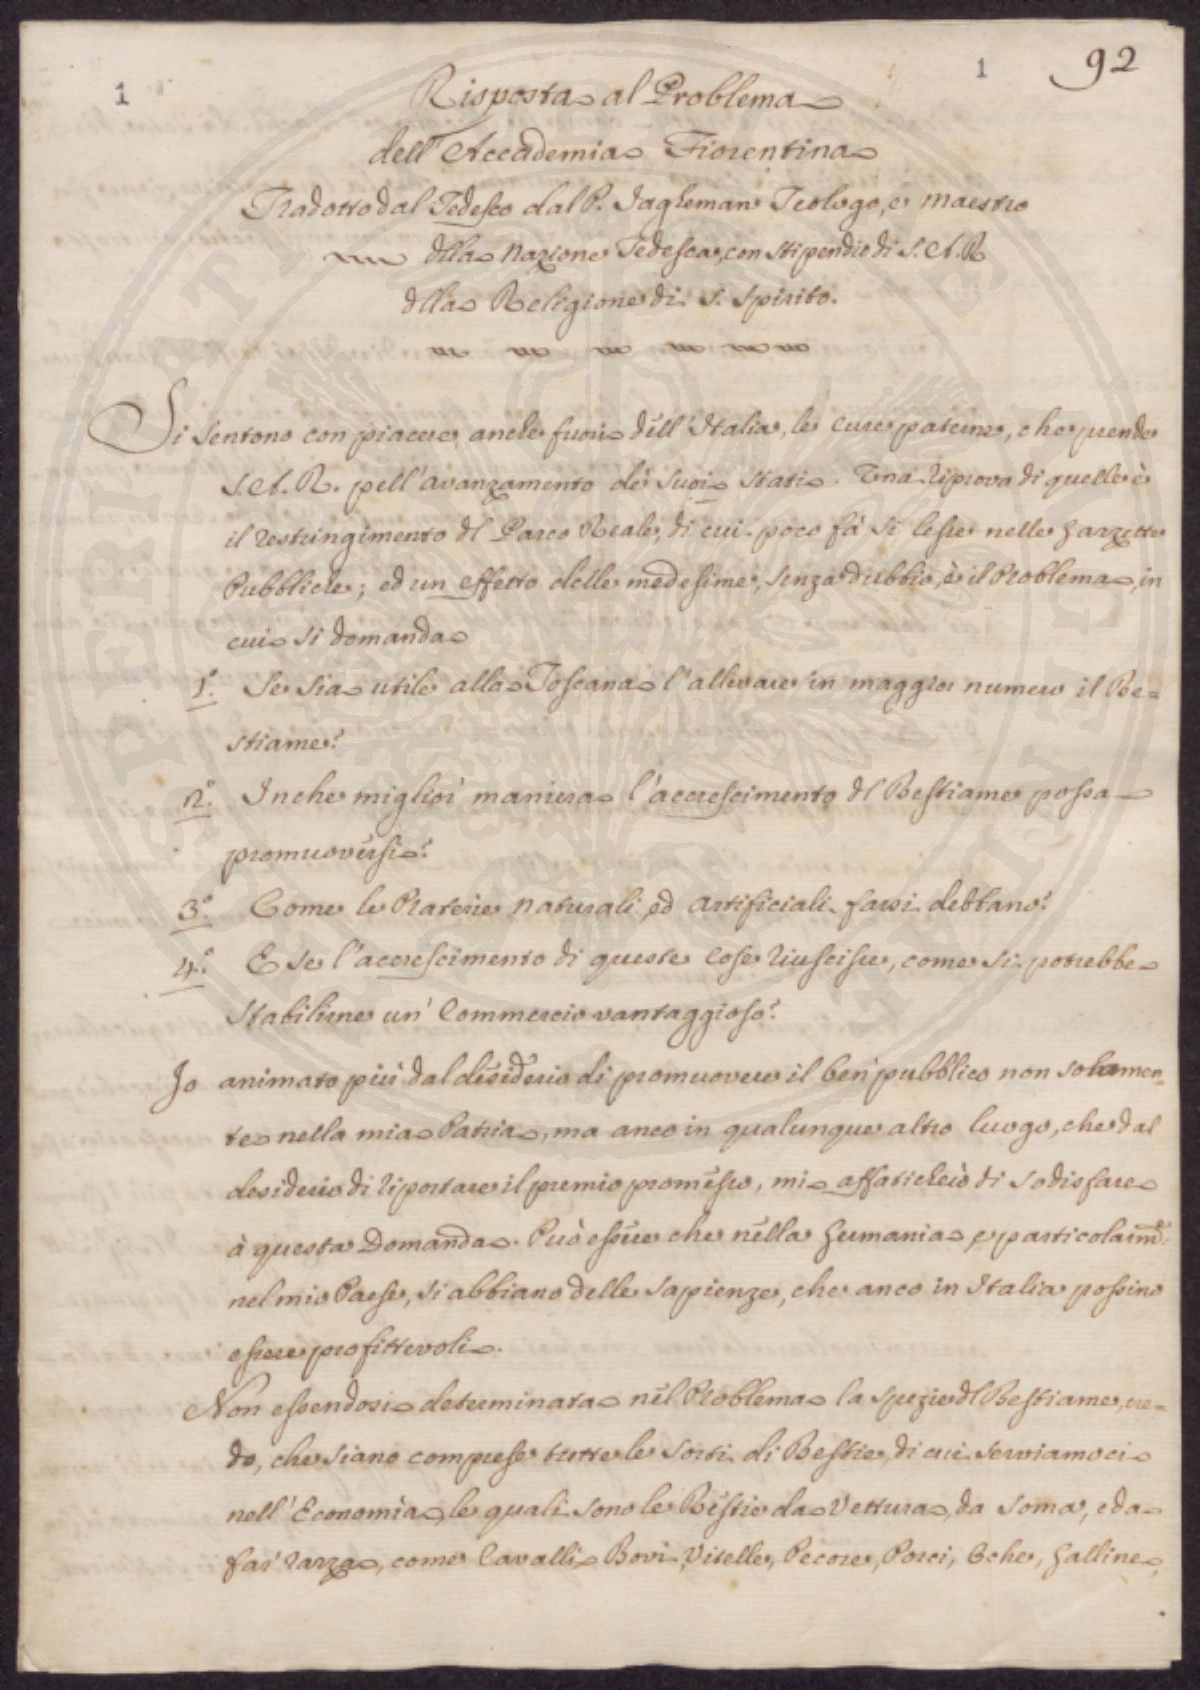 1 1 92
Risposta al Problema
dell'Accademia Fiorentina
Tradotto dal Tedesco dal P. Jagheman Teologo, e Maestro
dlla Nazione Tedesca, con stipendio di S. A. R.
dlla Religione di S. Spirito.
Si sentono con piacere, anche fuori dell'Italia, le cure paterne, che prende
S. A. R. pell'avanzamento de suoi stati. Una riprova di quelle è
il restringimento dl Parco Reale, di cui poco fà si lesse nelle Gazzette
Pubbliche; ed un effetto delle medesime, senza dubbio, è il Problema, in
cui si domanda
1.° Se sia utile alla Toscana l'allevare in maggior numero il Be-
stiame?
2.° In che miglior maniera l'accrescimento dl Bestiame possa
promuoversi?
3.° Come le Praterie naturali, ed artificiali farsi debbano?
4.° E se l'accrescimento di queste cose riuscisse, come si potrebbe
stabilirne un' Commercio vantaggioso?
Io animato più dal desiderio di promuovere il ben' pubblico non solamen-
te nella mia Patria, ma anco in qualunque altro luogo, che dal
desiderio di riportare il premio promesso, mi affaticherò di sodisfare
à questa Domanda. Può essere che nella Germania, e particolarm.e
nel mio Paese, si abbiano delle sapienze, che anco in Italia possino
essere profittevoli.
Non essendosi determinata nel Problema la spezie dl Bestiame, cre-
do, che siano comprese tutte le sorti di Bestie, di cui serviamoci
nell'Economia, le quali sono le Bestie da Vettura, da soma, e da
far' razza, come Cavalli, Bovi, Vitelle, Pecore, Porci, Oche, Galline,